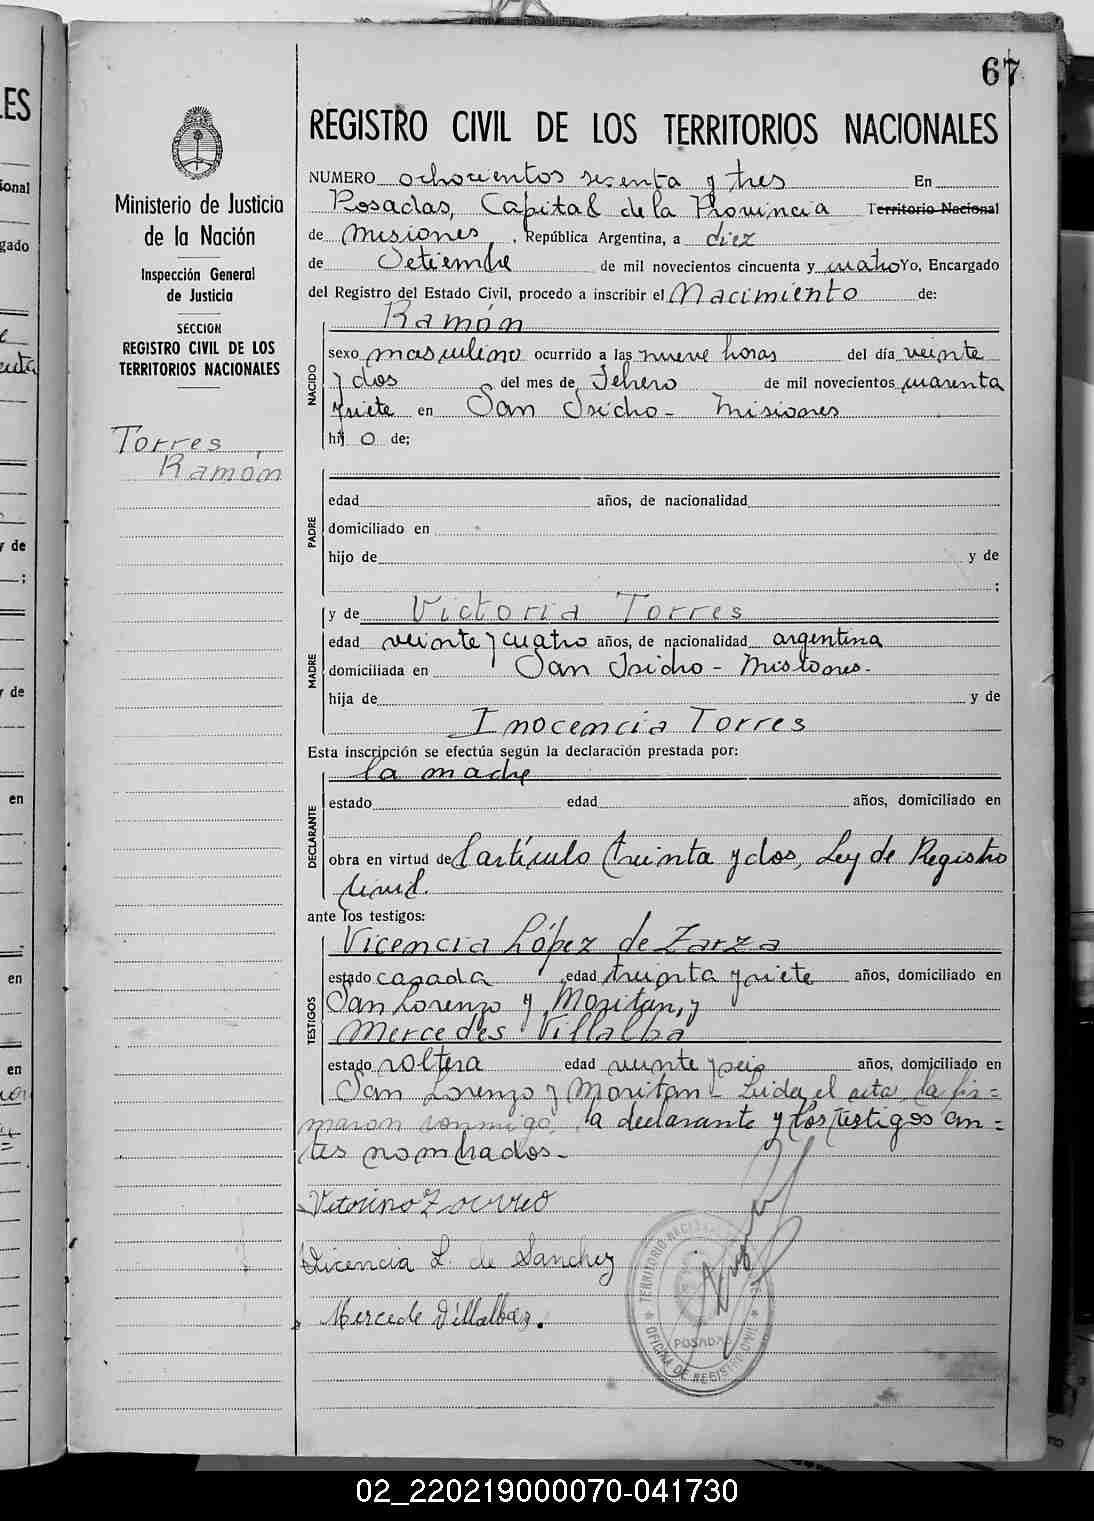 67
REGISTRO CIVIL DE LOS TERRITORIOS NACIONALES
Ministerio de Justicia
de la Nación
Inspección General
de Justicia
SECCION
REGISTRO CIVIL DE LOS
TERRITORIOS NACIONALES
Torres,
Ramón
NUMERO ochocientos sesenta y tres En
Posadas, Capital de la Provincia Territorio Nacional
de Misiones, República Argentina, a diez
de Setiembre de mil novecientos cincuenta y cuatro Yo, Encargado
del Registro del Estado Civil, procedo a inscribir el Nacimiento de:
Ramón
NACIDO
sexo masculino ocurrido a las nueve horas del día veinte
y dos del mes de Febrero de mil novecientos cuarenta
y siete en San Isidro - Misiones
hij o de;
PADRE
edad años, de nacionalidad
domiciliado en
hijo de y de
;
MADRE
y de Victoria Torres
edad veinte y cuatro años, de nacionalidad argentina
domiciliada en San Isidro - Misiones.
hija de y de
Inocencia Torres
Esta inscripción se efectúa según la declaración prestada por:
la madre
DECLARANTE
estado edad años, domiciliado en
obra en virtud del artículo treinta y dos, Ley de Registro
Civil.
ante los testigos:
TESTIGOS
Vicencia López de Zarza
estado casada edad treinta y siete años, domiciliado en
San Lorenzo y Moritán, y
Mercedes Villalba
estado soltera edad veinte y seis años, domiciliado en
San Lorenzo y Moritan - Leida el acta, la fir=
maron conmigo, la declarante y los testigos an-
tes nombrados.-
Vicencia L. de Sanchez
Mercede Villalba.
OFICINA DE REGISTRO CIVIL
POSADAS
02_220219000070-041730